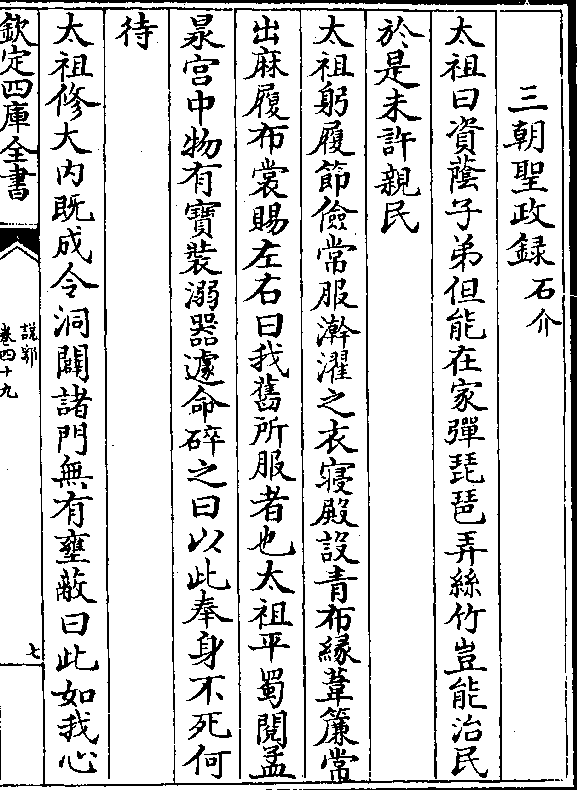 三朝聖政録 石介
太祖曰資蔭子弟但能在家彈琵琶弄絲竹豈能治民
於是未許親民
太祖躬履節儉常服澣濯之衣寝殿設青布緣葦簾常
出麻履布裳賜左右曰我舊所服者也太祖平蜀閱孟
㫤宫中物有寶裝溺器遽命碎之曰以此奉身不死何
待
太祖修大内既成令洞闢諸門無有壅蔽曰此如我心
欽定四庫全書
說郛
卷四十九
七